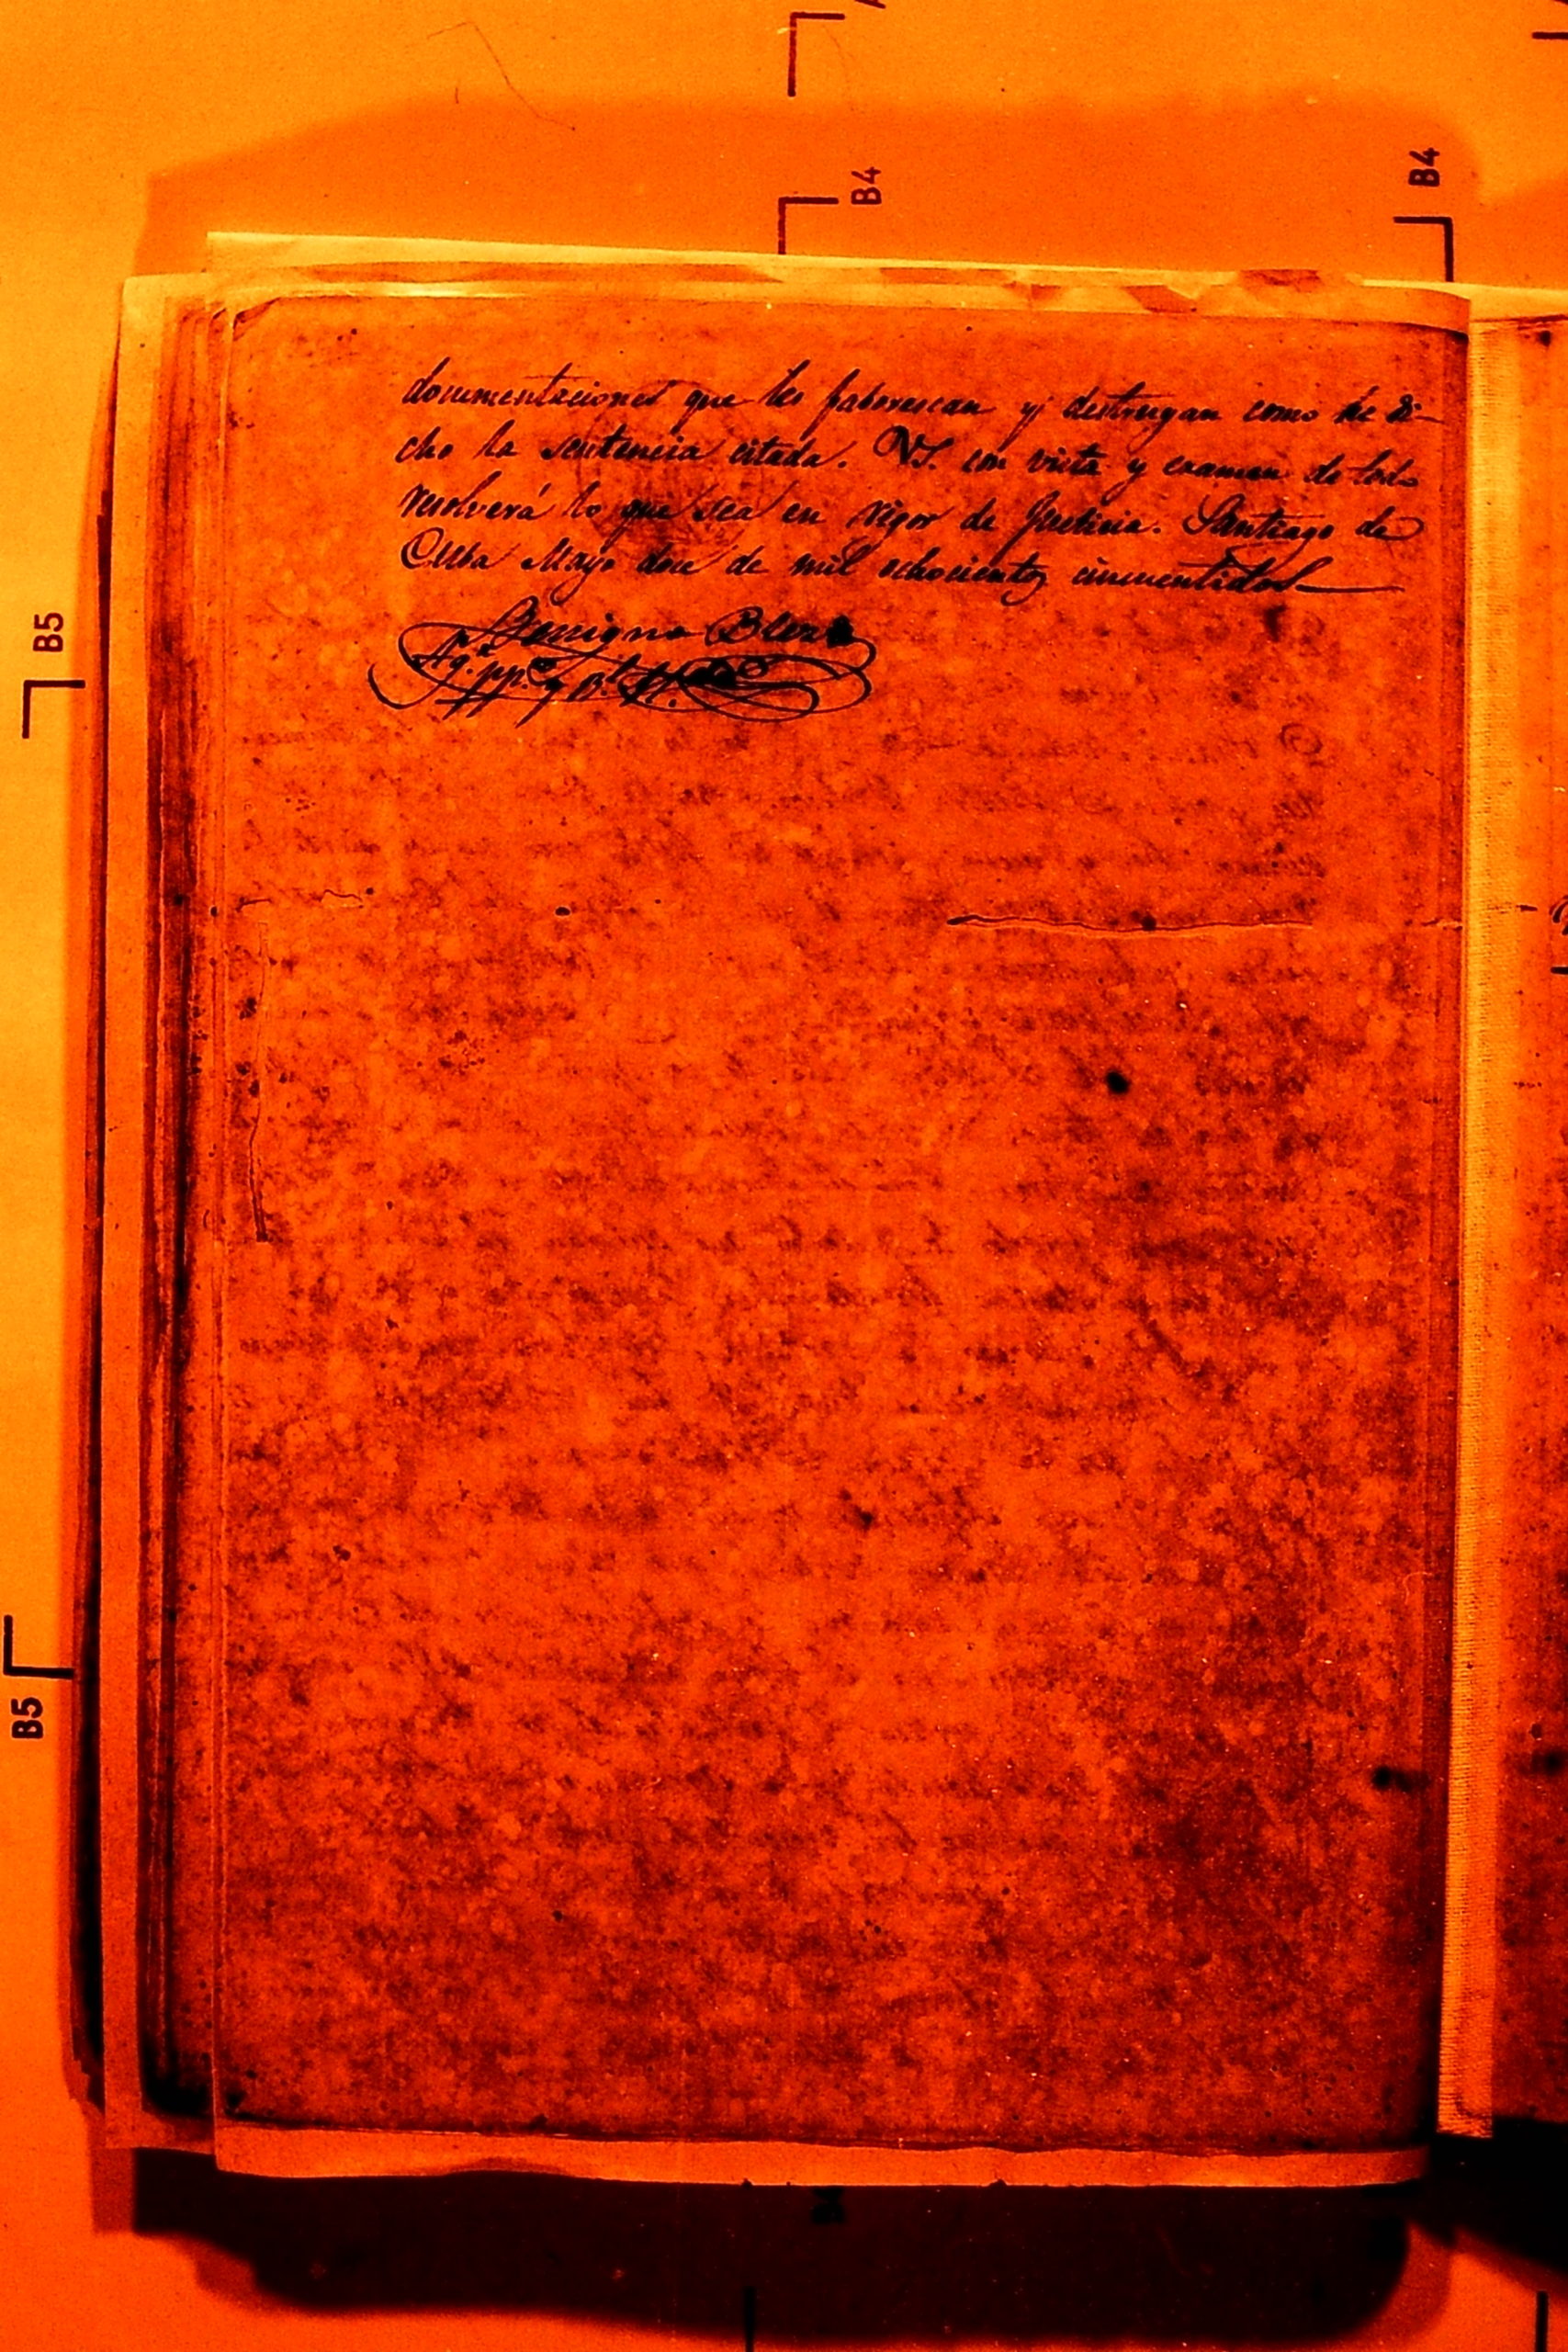 B4
B4
documentaciones que les faborescan y destruyan como he di-
cho la sentencia citada. VS. con vista y examen de todo
resolverá lo que sea en rigor de Justicia. Santiago de
Cuba Mayo doce de mil ochocientos cincuentidos
Benigno
B5
B5